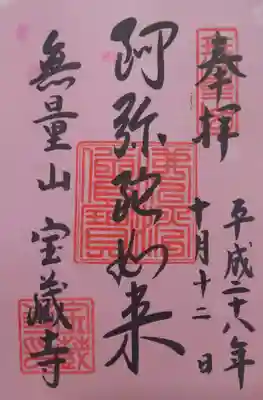 奉拝
平成二十八年
十月十二日
阿弥陀如来
無量山 宝蔵寺